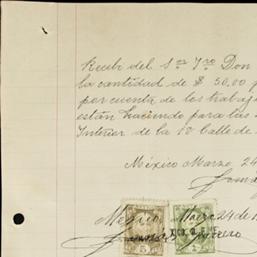 Recibí del Sor Yro Don
la cantidad de $ 50.00 p
por cuenta de los trabajo
están haciendo para las
Interior de la 10 calle de
México Marzo 24
Mexico Marzo 24 de 1
5